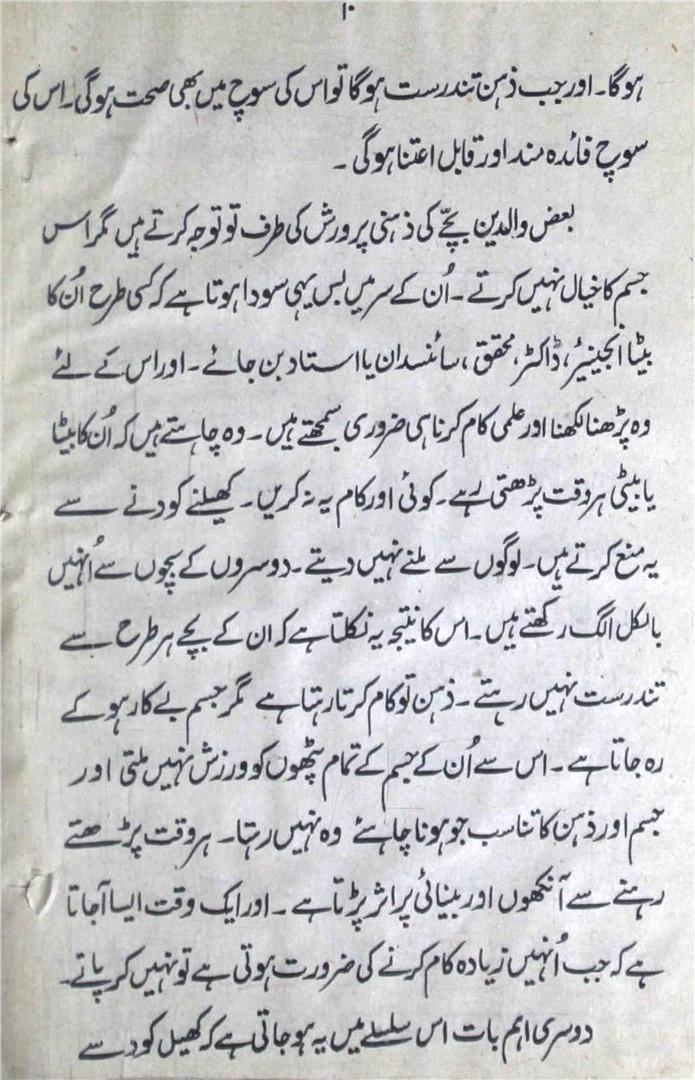 ۱۰
ہوگا۔ اور جب ذہن تندرست ہوگا تو اس کی سوچ میں بھی صحت ہوگی۔ اس کی
سوچ فائدہ مند اور قابل اعتنا ہوگی ۔
بعض والدین بچّے کی ذہنی پرورش کی طرف تو توجہ کرتے ہیں مگر اس
جسم کا خیال نہیں کرتے ۔ اُن کے سر میں بس یہی سودا ہوتا ہے کہ کسی طرح اُن کا
بیٹا انجینیئر، ڈاکٹر، محقق، سائنسدان یا استاد بن جائے ۔ اور اس کے لئے
وہ پڑھنا لکھنا اور علمی کام کرنا ہی ضروری سمجھتے ہیں ۔ وہ چاہتے ہیں کہ اُن کا بیٹا
یا بیٹی ہر وقت پڑھتی رہے ۔ کوئی اور کام یہ نہ کریں ۔ کھیلنے کودنے سے
یہ منع کرتے ہیں ۔ لوگوں سے ملنے نہیں دیتے ۔ دوسروں کے بچوں سے اُنہیں
بالکل الگ رکھتے ہیں ۔ اس کا نتیجہ یہ نکلتا ہے کہ ان کے بچے ہر طرح سے
تندرست نہیں رہتے ۔ ذہن تو کام کرتا رہتا ہے مگر جسم بے کار ہو کے
رہ جاتا ہے ۔ اس سے اُن کے جسم کے تمام پٹھوں کو ورزش نہیں ملتی اور
جسم اور ذہن کا تناسب جو ہونا چاہئے وہ نہیں رہتا ۔ ہر وقت پڑھتے
رہنے سے آنکھوں اور بینائی پر اثر پڑتا ہے ۔ اور ایک وقت ایسا آجاتا
ہے کہ جب اُنہیں زیادہ کام کرنے کی ضرورت ہوتی ہے تو نہیں کر پاتے۔
دوسری اہم بات اس سلسلے میں یہ ہو جاتی ہے کہ کھیل کود سے